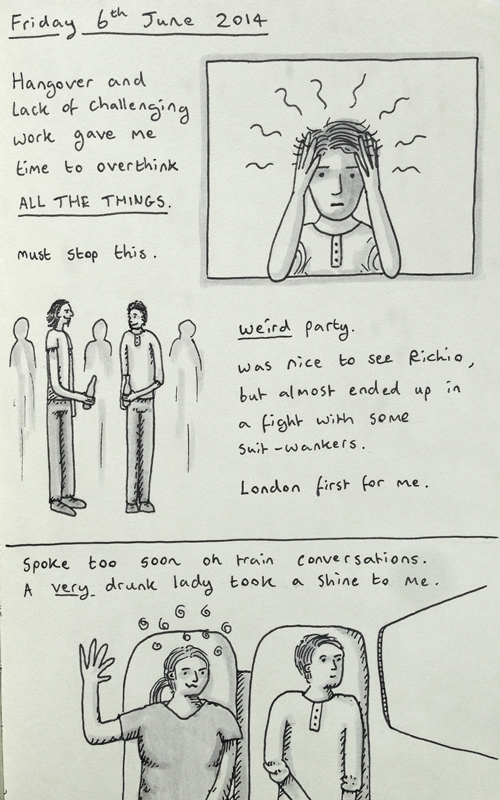 Friday 6th June 2014
Hangover and
Lack of challenging
work gave me
time to overthink
ALL THE THINGS.
must stop this.
weird party.
was nice to see Richio,
but almost ended up in
a fight with some
suit-wankers.
London first for me.
Spoke too soon on train conversations.
A very drunk lady took a shine to me.